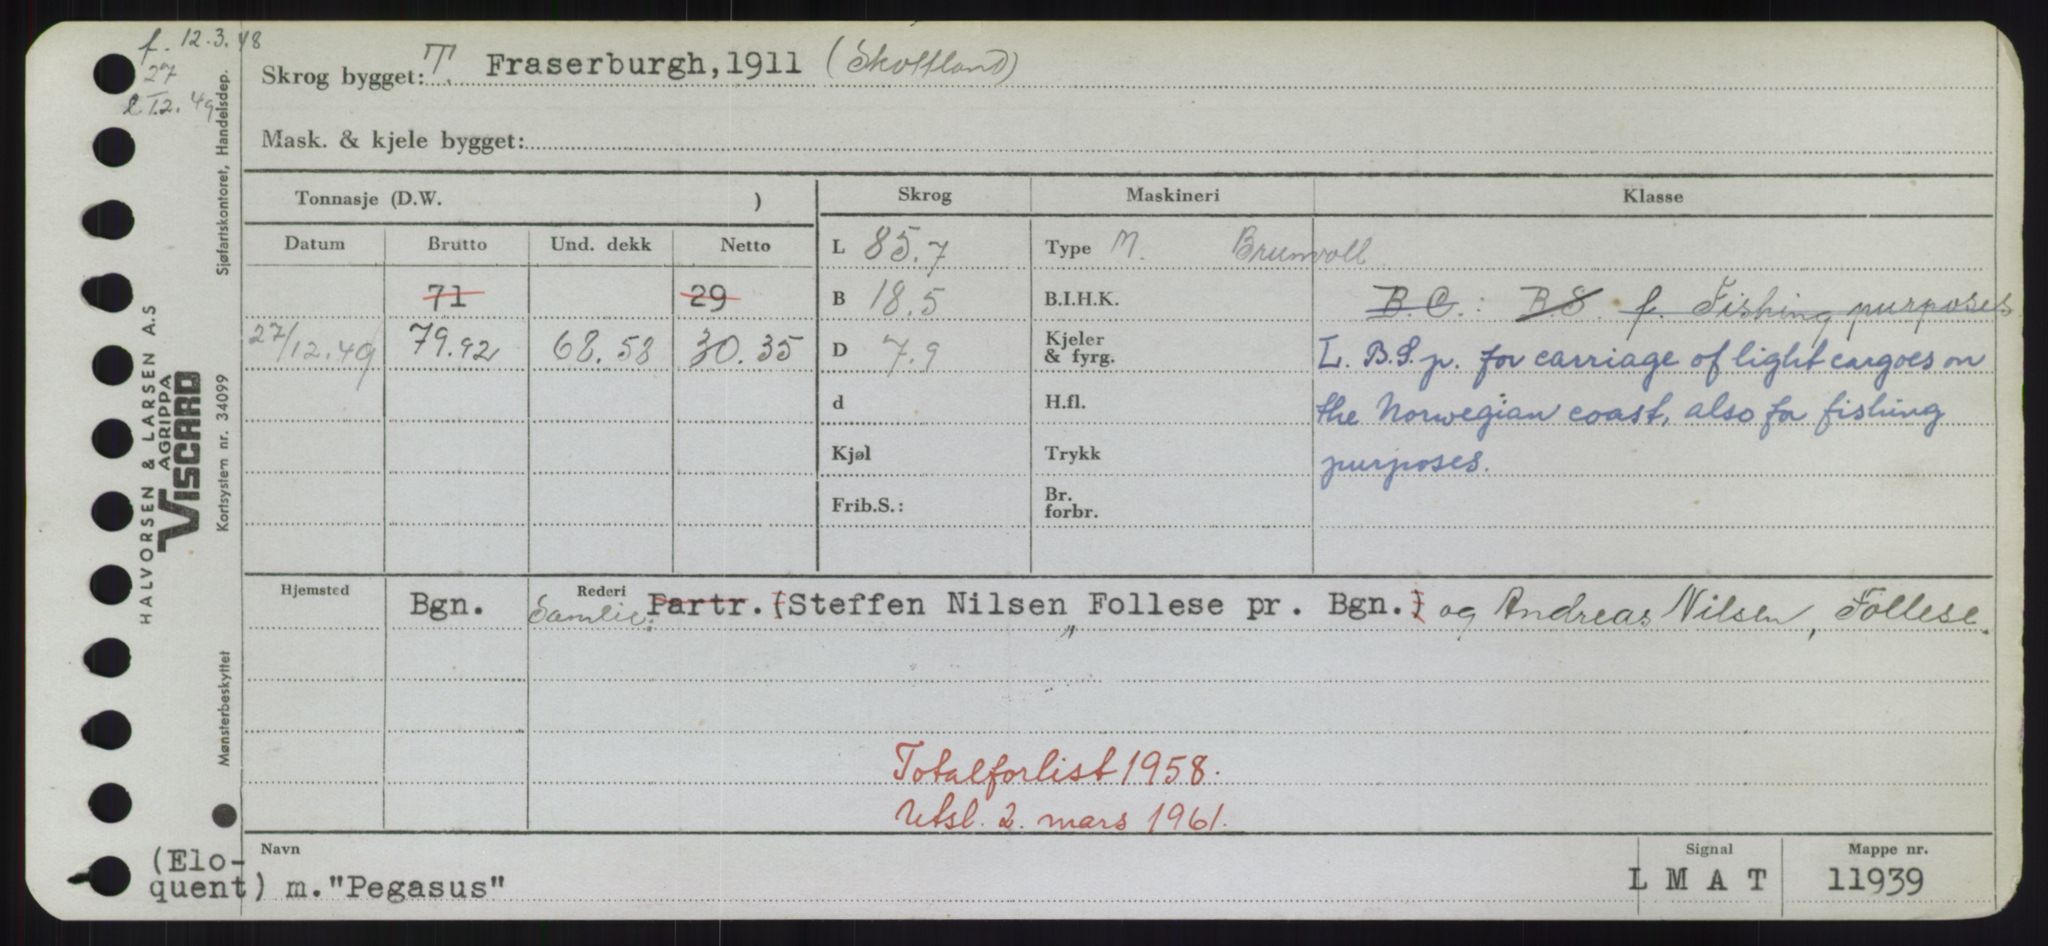 f. 12.3.48
27
12.49
Skrog bygget: T. Fraserburgh,1911 (Skottland)
Mask. & kjele bygget:
Tonnasje (D.W. )
Skrog
Maskineri
Klasse
Datum Brutto Und. dekk Netto
L 85.7
Type M. Brunvoll
71 29
B 18.5
B.I.H.K.
B.C.: BS. f. Fishing purposes
27/12.49 79.92 68.58 30.35
D 7.9
Kjeler
& fyrg.
L. B.S.p. for carriage of light cargoes on
d
H.fl.
the Norwegian coast, also for fishing
Kjøl
Trykk
purposes.
Frib.S.:
Br.
forbr.
Hjemsted Rederi
Bgn. Samlie: Partr. (Steffen Nilsen Follese pr. Bgn.) og Andreas Nilsen, Follese.
"
Totalforlist 1958.
Utsl. 2. mars 1961.
Navn Signal Mappe nr.
(Elo-
quent) m."Pegasus" L M A T 11939
HALVORSEN & LARSEN A.S
AGRIPPA
VISCARD
Sjøfartskontoret, Handelsdep.
Kortsystem nr. 34099
Mønsterbeskyttet